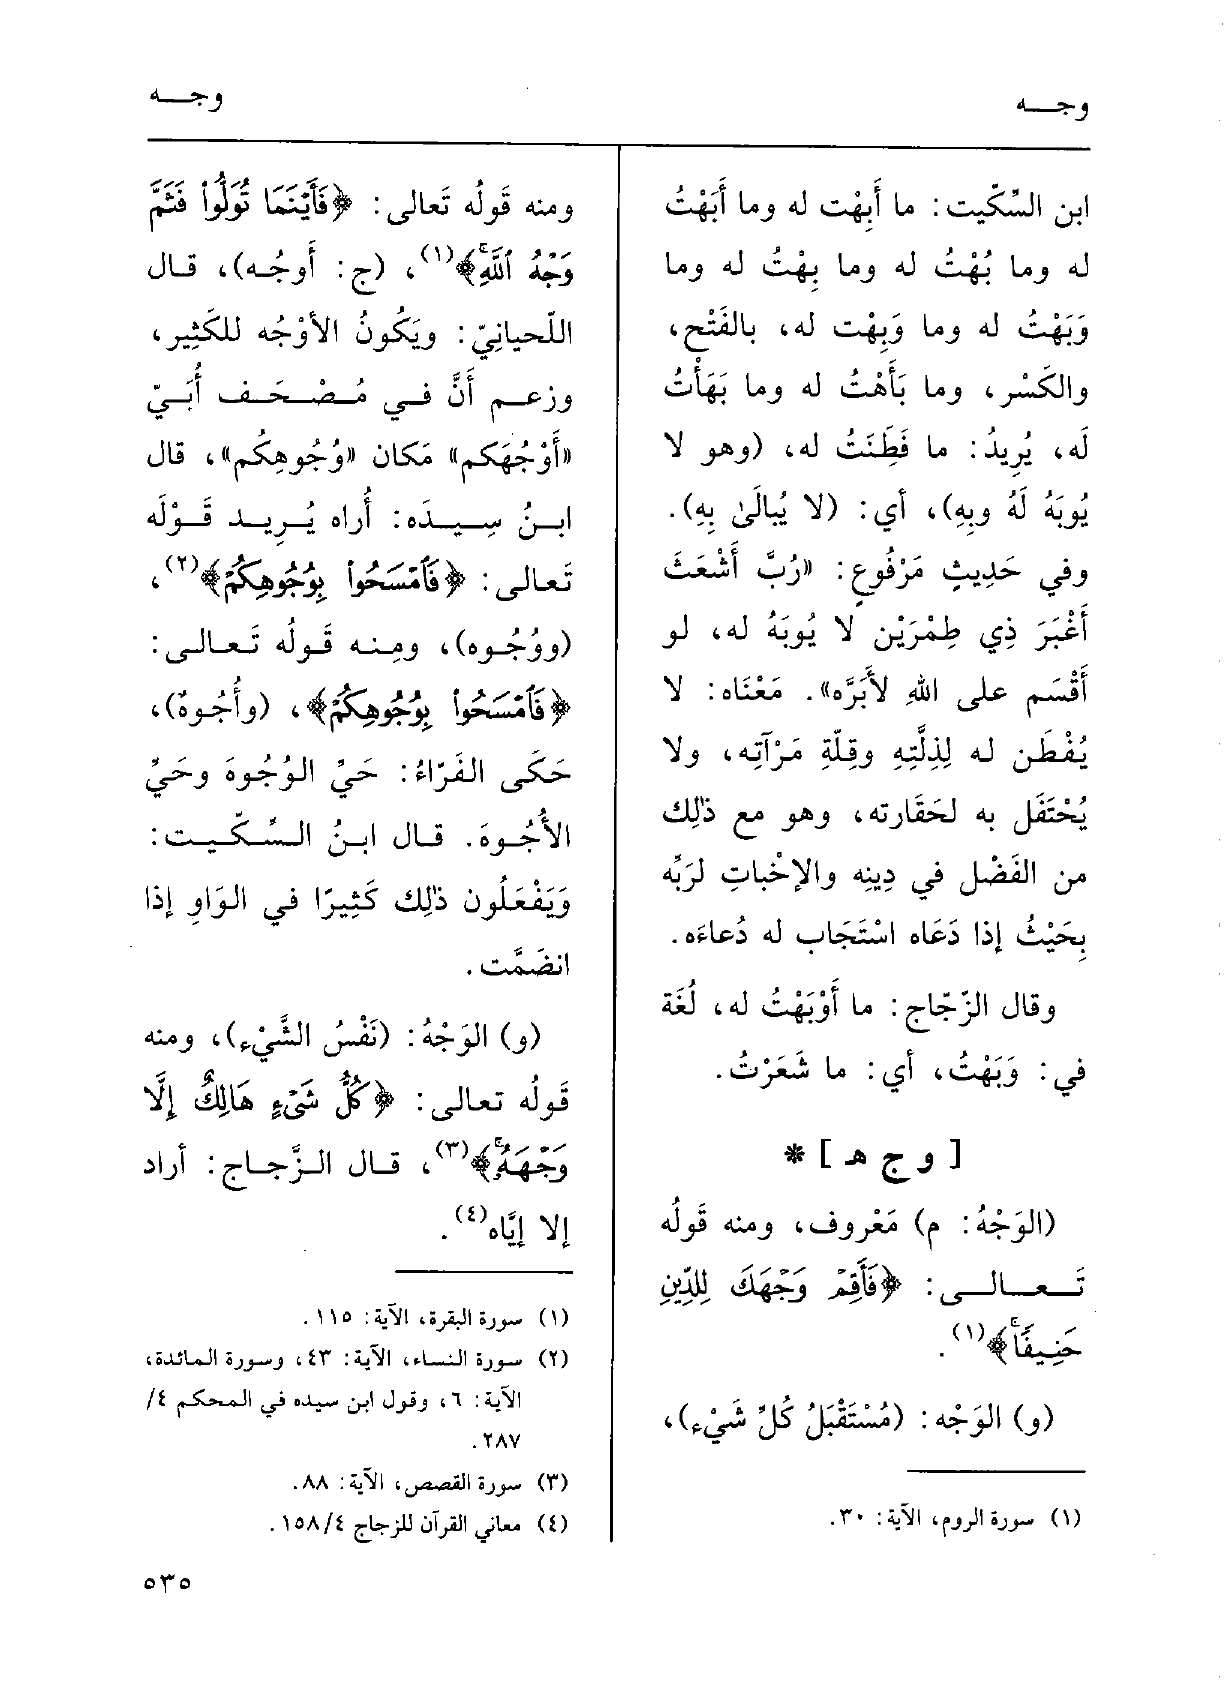 وجـــه
وجـــه
ابن السِّكّيت: ما أَبِهْت له وما أَبَهْتُ
له وما بُهْتُ له وما بِهْتُ له وما
وَبَهْتُ له وما وَبِهْت له، بالفَتْح،
والكَسْر، وما بَأَهْتُ له وما بَهَأْتُ
لَه، يُرِيدُ: ما فَطِنَتُ له، (وهو لا
يُوبَهُ لَهُ وبِهِ)، أي: (لا يُبالَىٰ بِهِ).
وفي حَدِيثٍ مَرْفُوعٍ: «رُبَّ أَشْعَثَ
أَغْبَرَ ذِي طِمْرَيْن لا يُوبَهُ له، لو
أَقْسَم على اللهِ لأَبَرَّه». مَعْنَاه: لا
يُفْطَن له لِذِلَّتِهِ وقِلَّةِ مَرْآتِه، ولا
يُحْتَفَل به لحَقَارته، وهو مع ذٰلِك
من الفَضْل في دِينِه والإخْباتِ لرَبِّه
بِحَيْثُ إذا دَعَاه اسْتَجَاب له دُعاءَه.
وقال الزّجّاج: ما أَوْبَهْتُ له، لُغَة
في: وَبَهْتُ، أي: ما شَعَرْتُ.
[ و ج هـ ] *
(الوَجْهُ: م) مَعْروف، ومنه قَولُه
تَـعـالـى: ﴿فَأَقِمْ وَجْهَكَ لِلدِّينِ
حَنِيفًاۚ﴾(١).
(و) الوَجْه: (مُسْتَقْبَلُ كُلِّ شَيْء)،
(١) سورة الروم، الآية: ٣٠.
ومنه قَولُه تَعالى: ﴿فَأَيْنَمَا تُوَلُّواْ فَثَمَّ
وَجْهُ ٱللَّهِۚ﴾(١)، (ج: أَوجُـه)، قـال
اللّحيانِيّ: ويَكُونُ الأَوْجُه للكَثِير،
وزعـم أَنَّ فـي مُـصْـحَـف أُبَـيّ
«أَوْجُهَكم» مَكان «وُجُوهِكُم»، قال
ابـنُ سِـيـدَه: أُراه يُـرِيـد قَـوْلَه
تَعالى: ﴿فَٱمْسَحُواْ بِوُجُوهِكُمْ﴾(٢)،
(ووُجُـوه)، ومِـنـه قَـولُه تَـعـالـى:
﴿فَٱمْسَحُواْ بِوُجُوهِكُمْ﴾، (وأُجُـوهٌ)،
حَكَى الفَرّاءُ: حَيِّ الوُجُوهَ وحَيِّ
الأُجُـوهَ. قـال ابـنُ الـسِّـكّـيـت:
وَيَفْعَلُون ذٰلِك كَثِيرًا في الوَاوِ إذا
انضَمَّت.
(و) الوَجْهُ: (نَفْسُ الشَّيْء)، ومنه
قَولُه تعالى: ﴿كُلُّ شَيْءٍ هَالِكٌ إِلَّا
وَجْهَهُۥۚ﴾(٣)، قـال الـزَّجـاج: أراد
إلا إيَّاه(٤).
(١) سورة البقرة، الآية: ١١٥.
(٢) سورة النساء، الآية: ٤٣، وسورة المائدة،
الآية: ٦، وقول ابن سيده في المحكم ٤/
٢٨٧.
(٣) سورة القصص، الآية: ٨٨.
(٤) معاني القرآن للزجاج ١٥٨/٤.
٥٣٥